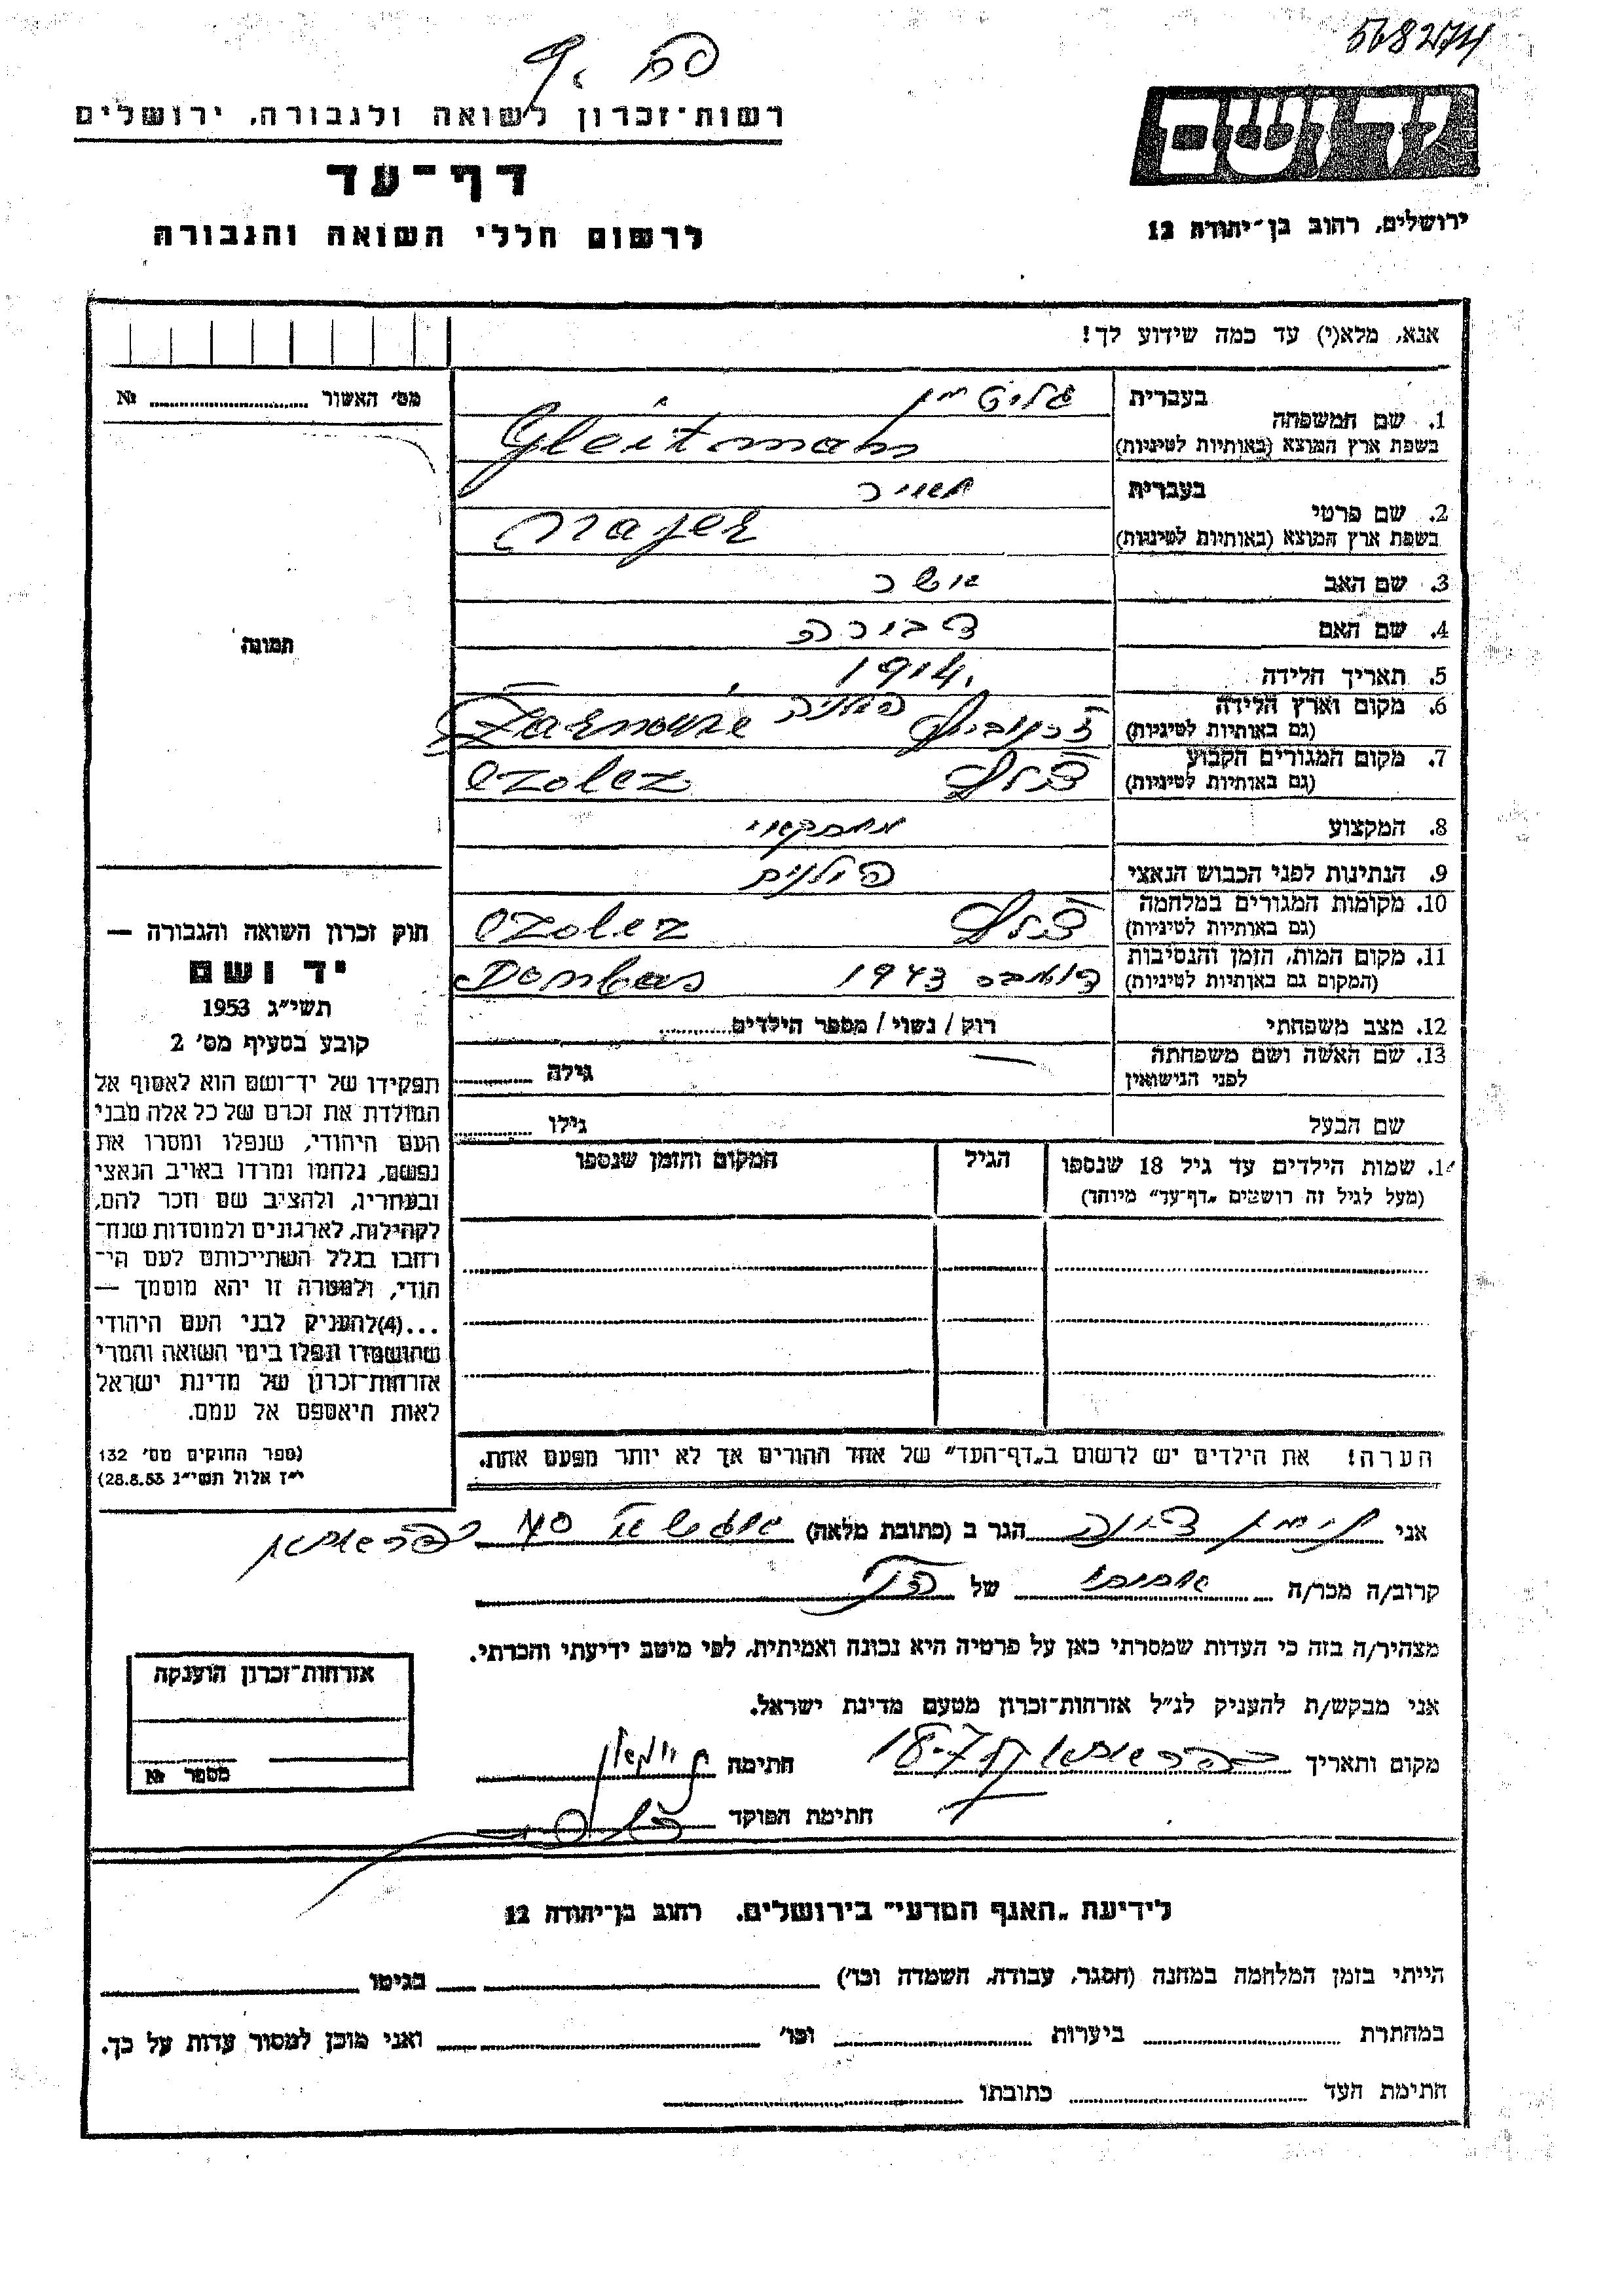 568274
רשות־זכרון לשואה ולגבורה, ירושלים
דף־עד
לרשום חללי השואה והגבורה
יד ושם
ירושלים, רחוב בן־יהודה 12
אנא, מלא(י) עד כמה שידוע לך!
מס׳ האשור № 
1. שם המשפחה בעברית
בשפת ארץ המוצא (באותיות לטיניות) Gleitman
2. שם פרטי בעברית מאיר
בשפת ארץ המוצא (באותיות לטיניות) Majer
3. שם האב אשר
4. שם האם דבורה
5. תאריך הלידה 1914.
6. מקום וארץ הלידה פולניה
(גם באותיות לטיניות)
7. מקום המגורים הקבוע
(גם באותיות לטיניות) Ozolez
8. המקצוע
9. הנתינות לפני הכבוש הנאצי פולנית
10. מקומות המגורים במלחמה
(גם באותיות לטיניות) Ozolez
11. מקום המות, הזמן והנסיבות דומבס 1943
(המקום גם באותיות לטיניות) Dombas
12. מצב משפחתי רוק / נשוי / מספר הילדים
13. שם האשה ושם משפחתה
לפני הנישואין גילה
שם הבעל גילו
14. שמות הילדים עד גיל 18 שנספו
(מעל לגיל זה רושמים „דף־עד״ מיוחד)
הגיל
המקום והזמן שנספו
תמונה
חוק זכרון השואה והגבורה —
יד ושם
תשי״ג 1953
קובע בסעיף מס׳ 2
תפקידו של יד־ושם הוא לאסוף אל
המולדת את זכרם של כל אלה מבני
העם היהודי, שנפלו ומסרו את
נפשם, נלחמו ומרדו באויב הנאצי
ובעוזריו, ולהציב שם וזכר להם,
לקהילות, לארגונים ולמוסדות שנח־
רבו בגלל השתייכותם לעם הי־
הודי, ולמטרה זו יהא מוסמך —
...(4) להעניק לבני העם היהודי
שהושמדו ונפלו בימי השואה והמרי
אזרחות־זכרון של מדינת ישראל
לאות היאספם אל עמם.
(ספר החוקים מס׳ 132
י״ז אלול תשי״ג 28.8.53)
הערה! את הילדים יש לרשום ב„דף־העד״ של אחד ההורים אך לא יותר מפעם אחת.
אני הגר ב (כתובת מלאה)
קרוב/ה מכר/ה של
מצהיר/ה בזה כי העדות שמסרתי כאן על פרטיה היא נכונה ואמיתית, לפי מיטב ידיעתי והכרתי.
אני מבקש/ת להעניק לנ״ל אזרחות־זכרון מטעם מדינת ישראל.
מקום ותאריך חתימה
חתימת הפוקד
אזרחות־זכרון הוענקה
מספר №
לידיעת „האגף המדעי״ בירושלים, רחוב בן־יהודה 12
הייתי בזמן המלחמה במחנה (הסגר, עבודה, השמדה וכו׳) בגיטו
במחתרת ביערות וכו׳ ואני מוכן למסור עדות על כך.
חתימת העד כתובתו